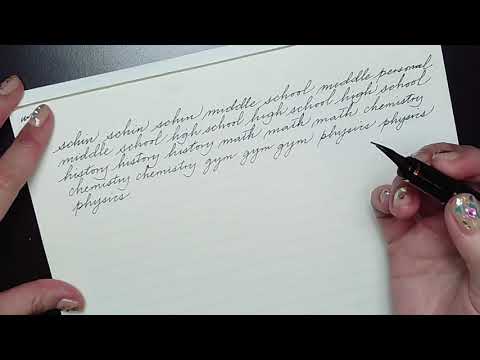 schin schin schin middle school middle personal
middle school hgh school high school high school
history history history math math math chemistry
chemistry chemistry gym gym gym physics physics
physics